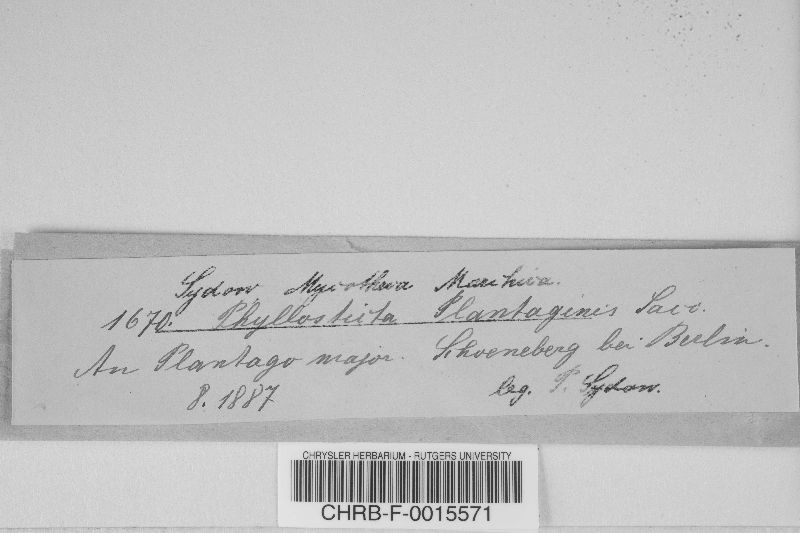 Sydow Mycotheca Marchica.
1670. Phyllosticta Plantaginis Sacc.
An Plantago major. Schoeneberg bei Berlin.
8. 1887 leg. P. Sydow.
CHRYSLER HERBARIUM - RUTGERS UNIVERSITY
CHRB-F-0015571